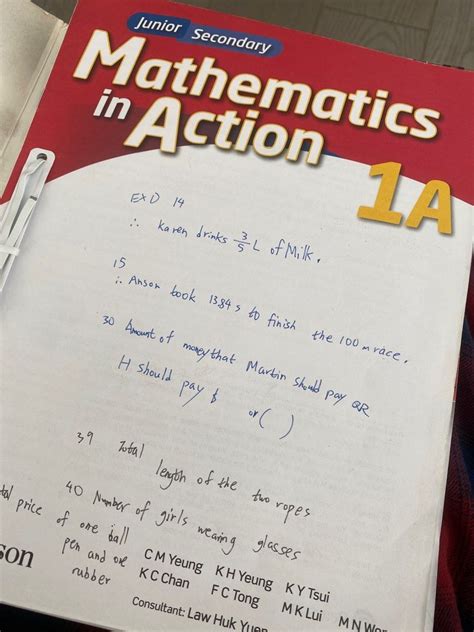 Junior Secondary
Mathematics
in Action
1A
EXD 14
∴ Karen drinks 3/5 L of Milk.
15
∴ Anson took 13.84 s to finish the 100 m race.
30 Amount of money that Martin should pay OR
H should pay $ or ( )
39 Total
length of the two ropes
40 Number of girls wearing glasses
price of one ball
pen and one
rubber
son
C M Yeung K H Yeung K Y Tsui
K C Chan F C Tong M K Lui M N
Consultant: Law Huk Yuen